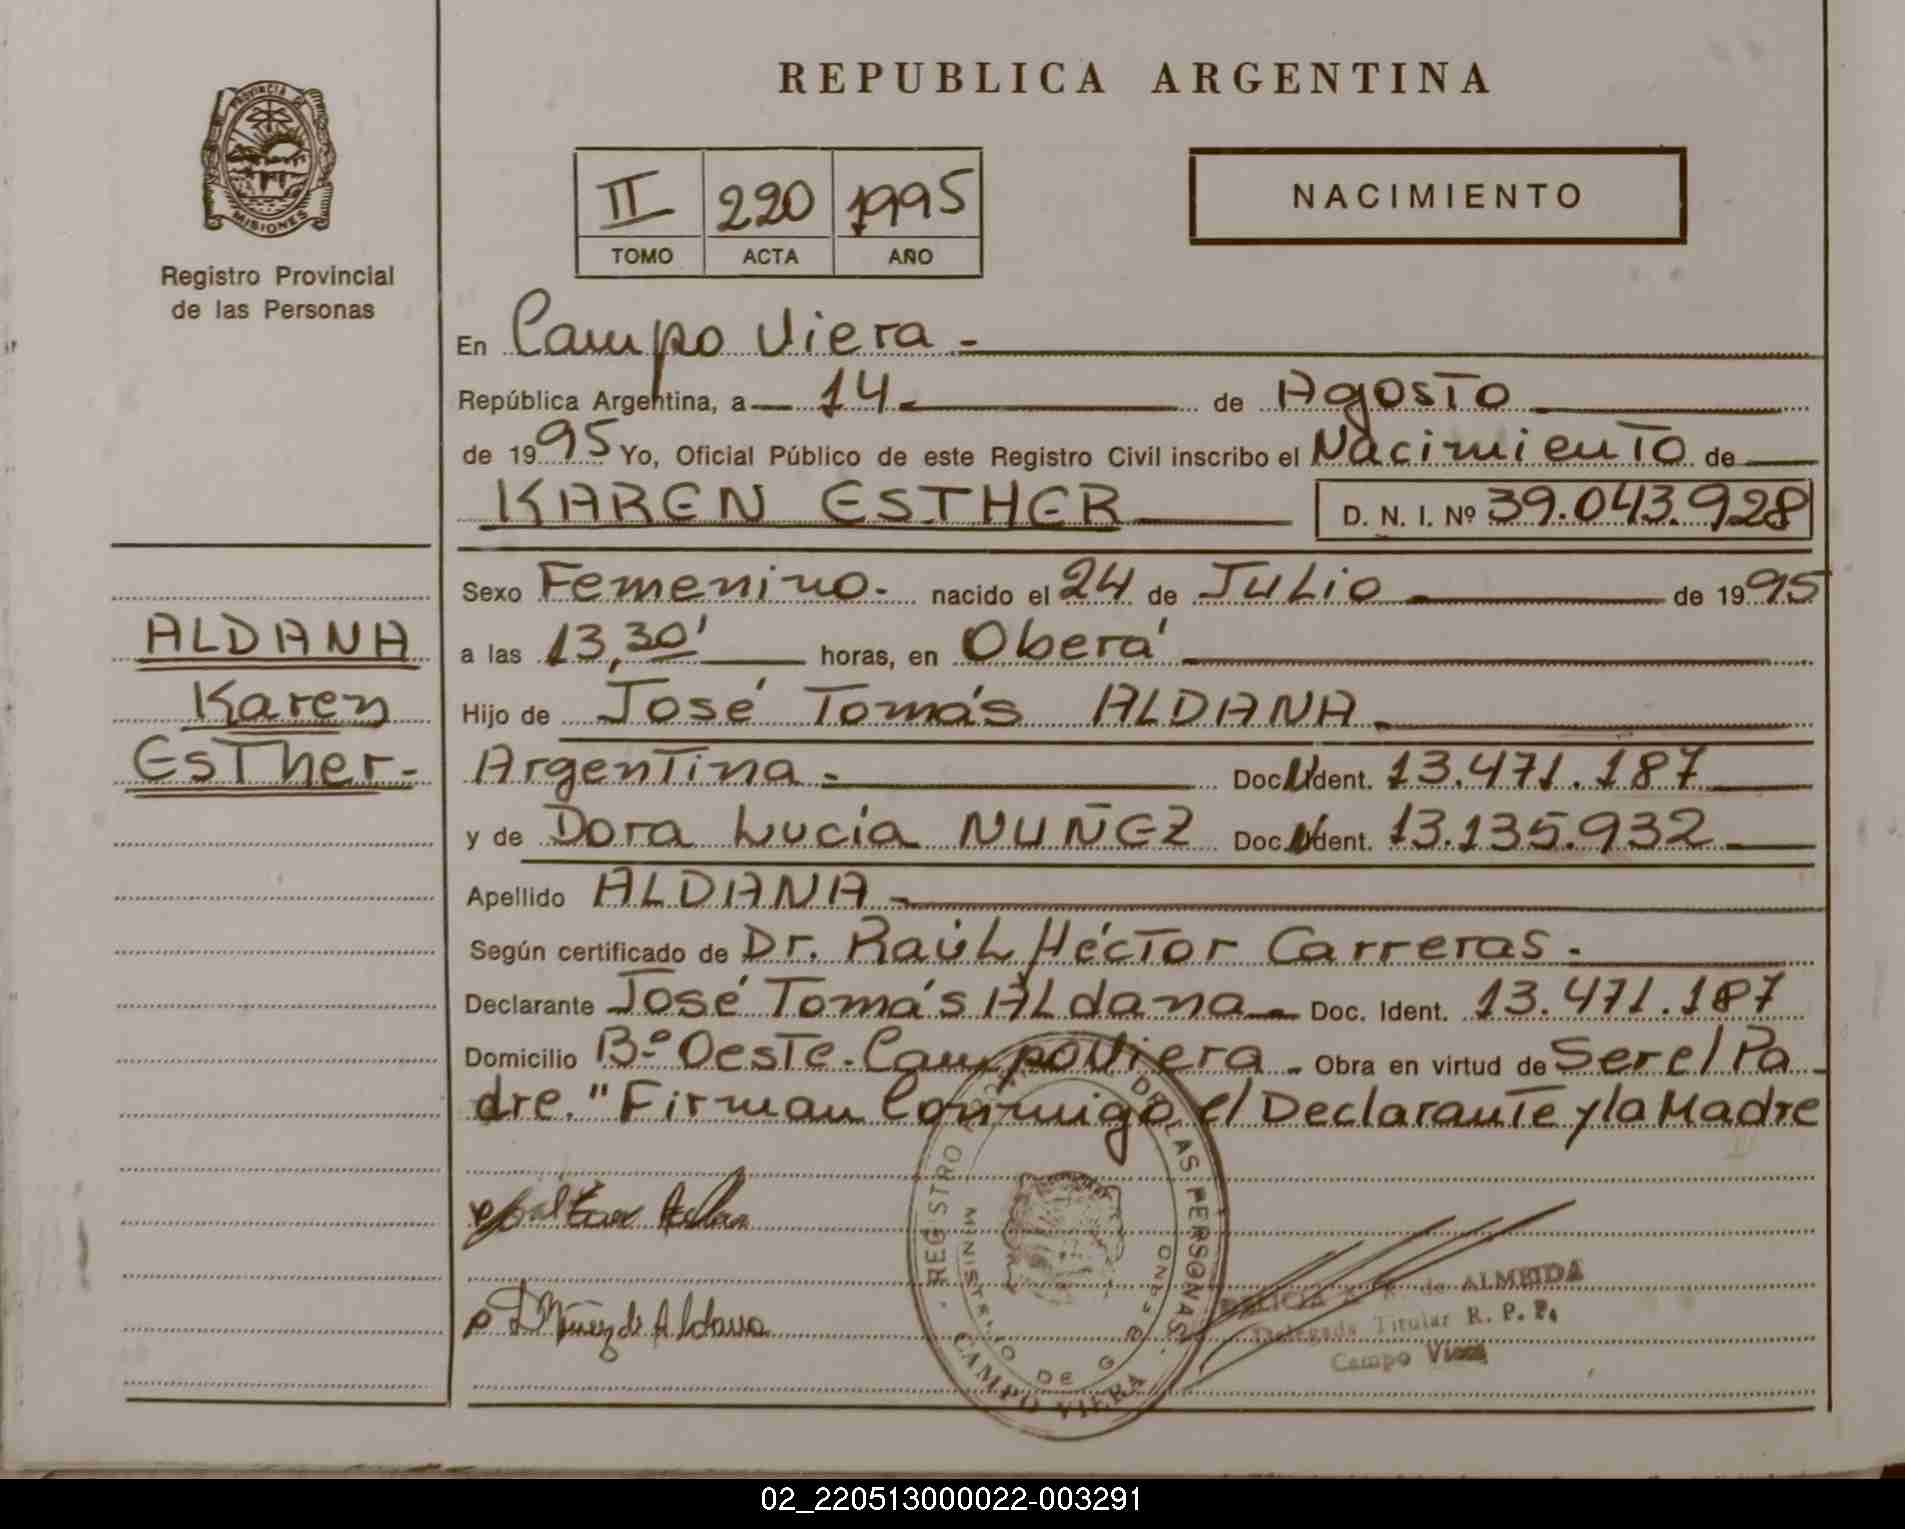 REPUBLICA ARGENTINA
PROVINCIA DE
MISIONES
Registro Provincial
de las Personas
II 220 1995
TOMO ACTA AÑO
NACIMIENTO
En Campo Viera -
República Argentina, a 14 de Agosto
de 1995 Yo, Oficial Público de este Registro Civil inscribo el Nacimiento de
KAREN ESTHER D. N. I. Nº 39.043.928
Sexo Femenino. nacido el 24 de Julio de 1995
a las 13,30' horas, en Oberá
Hijo de José Tomás ALDANA
Argentina - Doc. Ident. 13.471.187
y de Dora Lucía NUÑEZ Doc. Ident. 13.135.932
Apellido ALDANA
Según certificado de Dr. Raúl Héctor Carreras.
Declarante José Tomás Aldana Doc. Ident. 13.471.187
Domicilio Bº Oeste. Campo Viera Obra en virtud de Ser el Pa
dre. "Firman Conmigo el Declarante y la Madre
ALDANA
Karen
Esther-
D Núñez de Aldana
REGISTRO DE LAS PERSONAS
MINISTERIO DE
CAMPO VIERA
de ALMEIDA
Delegada Titular R. P. P.
Campo Viera
02_220513000022-003291